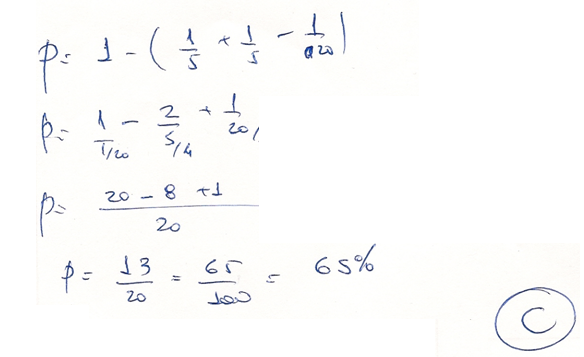 p = 1 - ( 1/5 + 1/5 - 1/20 )
p = 1/1/20 - 2/5/4 + 1/20/
p = 20 - 8 + 1 / 20
p = 13/20 = 65/100 = 65%
C